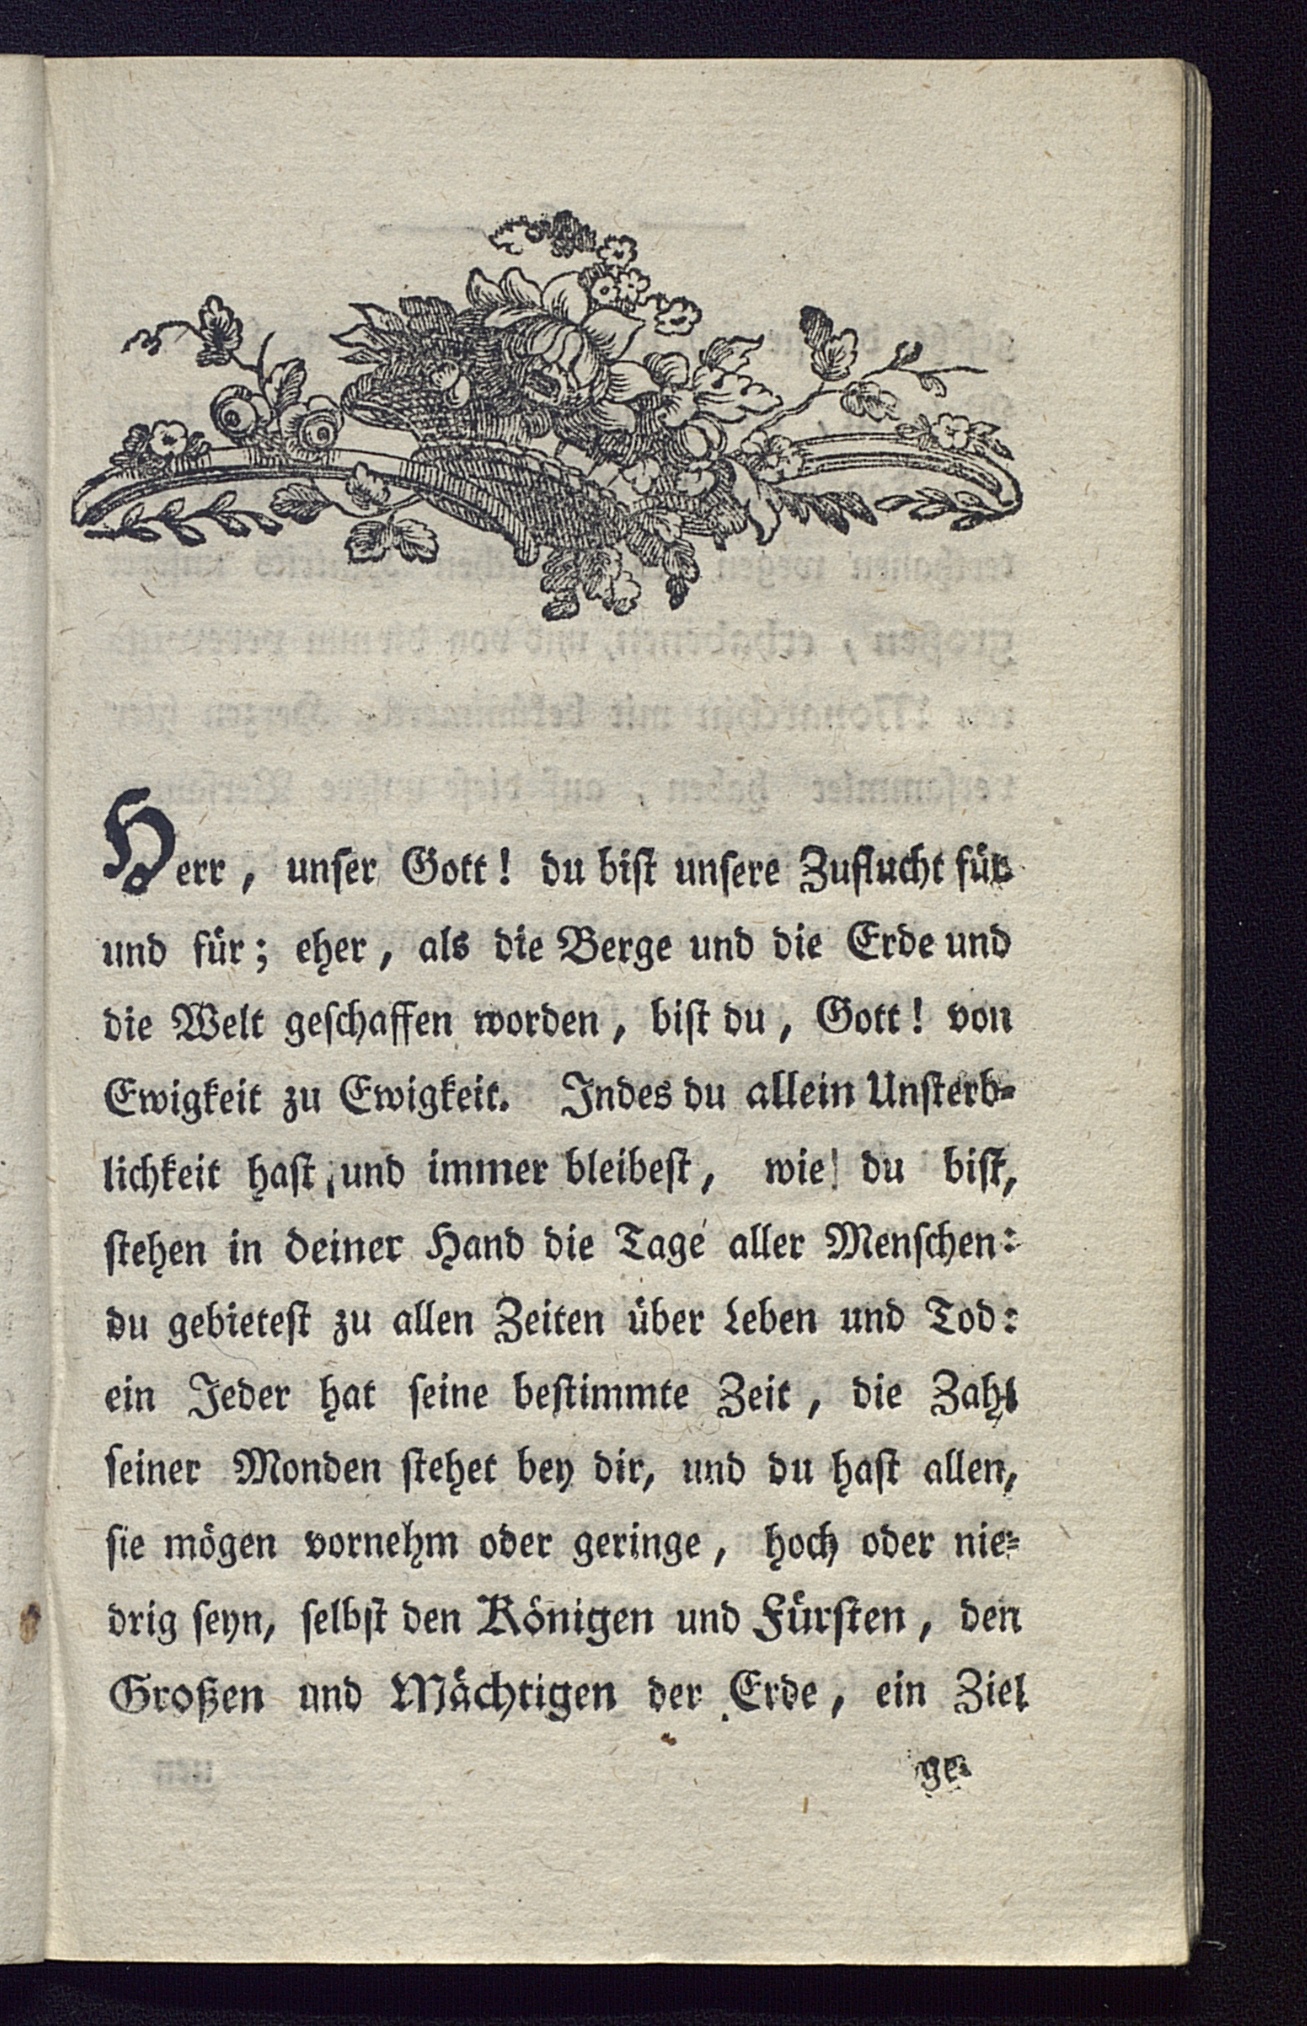 Herr, unser Gott! du bist unsere Zuflucht für
und für; eher, als die Berge und die Erde und
die Welt geschaffen worden, bist du, Gott! von
Ewigkeit zu Ewigkeit. Indes du allein Unsterb-
lichkeit hast, und immer bleibest, wie du bist,
stehen in deiner Hand die Tage aller Menschen:
du gebietest zu allen Zeiten über Leben und Tod:
ein Jeder hat seine bestimmte Zeit, die Zahl
seiner Monden stehet bey dir, und du hast allen,
sie mögen vornehm oder geringe, hoch oder nie-
drig seyn, selbst den Königen und Fürsten, den
Großen und Mächtigen der Erde, ein Ziel
ge-